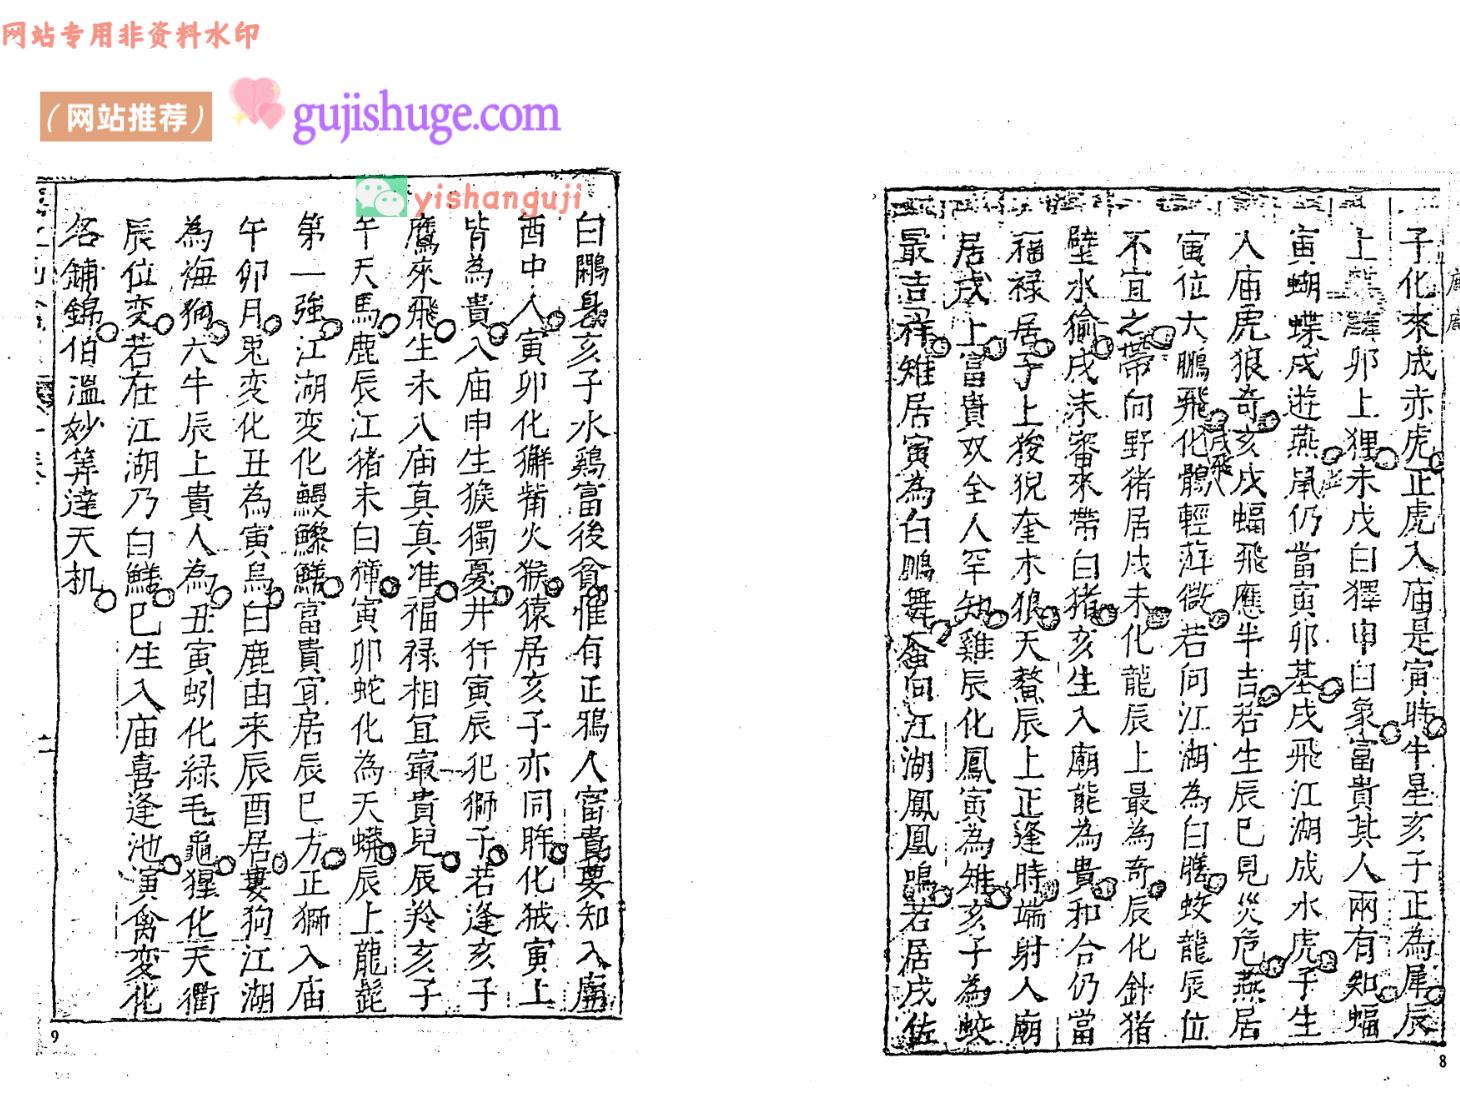 网站专用非资料水印
（网站推荐）
gujishuge.com
yishanguji
子化來成赤虎正虎入庙是寅時牛星亥子正為犀辰
上卯上狸未戌白獐申白象富貴其人兩有知蝠
寅蝴蝶戌遊燕鼠仍當寅卯基戌飛江湖成水虎子生
入庙虎狼奇亥戌蝠飛應半吉若生辰巳見災危燕居
寅位大鵬飛化鶻輕遊微若向江湖為白鱔蛟龍辰位
不宜之帶向野猪居戌未化龍辰上最為奇辰化針猪
壁水㺄戌未審來帶白猪亥生入廟能為貴和合仍當
福禄居子上狻猊奎木狼天鰲辰上正逢時端射人廟
居戌上富貴双全人罕知雞辰化鳳寅為雉亥子為蛟
最吉祥雉居寅為白鵰舞向江湖鳳凰鳴若居戌位
白鷴身亥子水鷄富後貧惟有正鴉人富貴要知入廟
酉中人寅卯化獬觜火猴猿居亥子亦同眸化狨寅上
皆為貴入庙申生猴獨憂井犴寅辰犯獅子若逢亥子
鷹來飛生未入庙真真准福禄相宜最貴兒辰羚亥子
午天馬鹿辰江猪未白獐寅卯蛇化為天蟒辰上龍髭
第一強江湖变化鰻鱉鱔富貴宜居辰巳方正獅入庙
午卯月兎变化丑為寅鳥白鹿由来辰酉居婁狗江湖
為海獅六牛辰上貴人為丑寅蚓化緑毛龜猩化天衢
辰位变若在江湖乃白鱔巳生入庙喜逢池寅禽变化
各鋪錦伯溫妙筭達天机
9
8